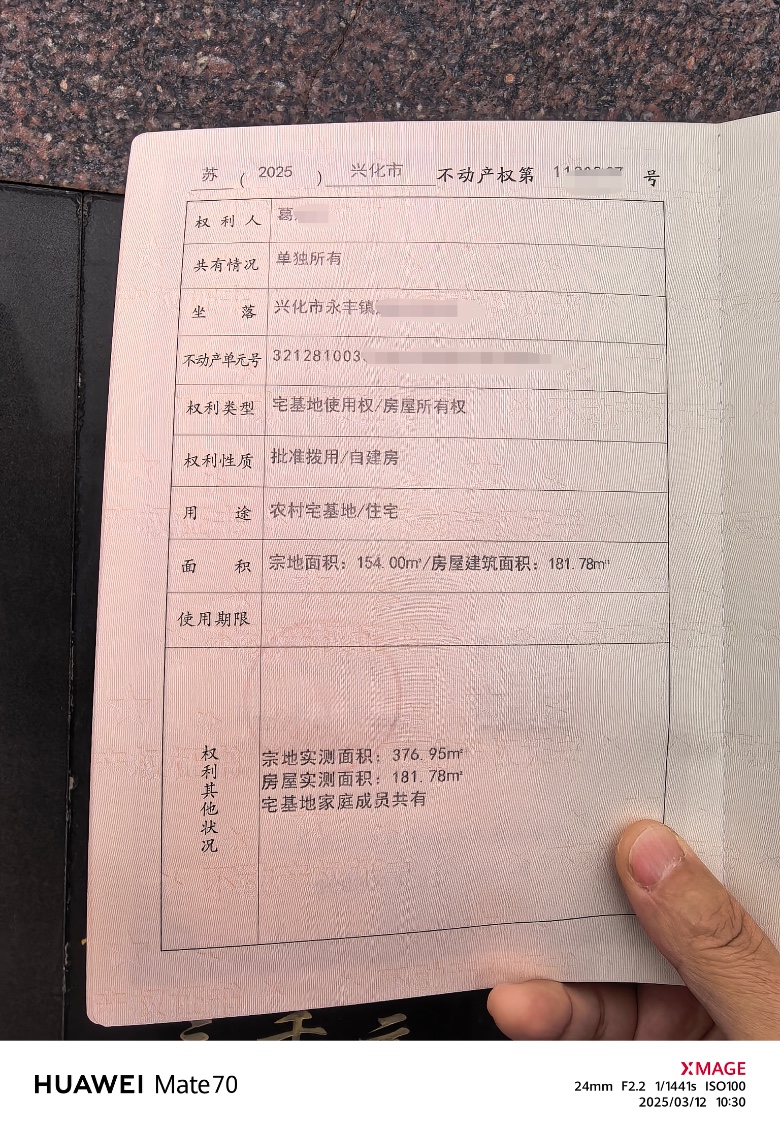 苏 ( 2025 ) 兴化市 不动产权第 11 号
权利人 葛
共有情况 单独所有
坐落 兴化市永丰镇
不动产单元号 321281003
权利类型 宅基地使用权/房屋所有权
权利性质 批准拨用/自建房
用途 农村宅基地/住宅
面积 宗地面积：154.00㎡/房屋建筑面积：181.78㎡
使用期限
权利其他状况
宗地实测面积：376.95㎡
房屋实测面积：181.78㎡
宅基地家庭成员共有
HUAWEI Mate70
XMAGE
24mm F2.2 1/1441s ISO100
2025/03/12 10:30